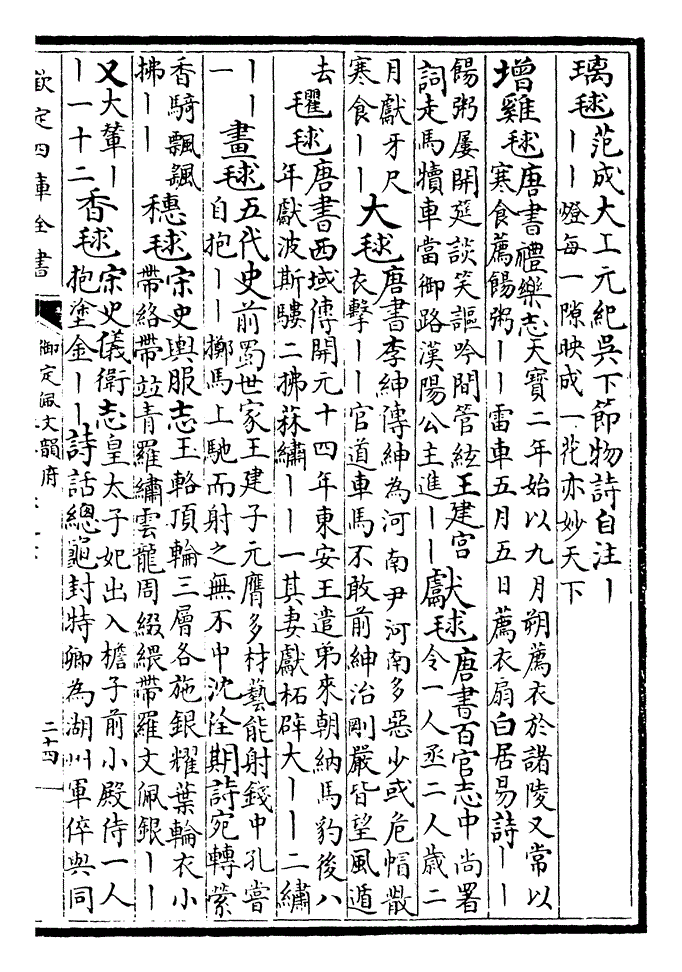 璃毬范成大工元紀吳下節物詩自注丨
丨丨燈每一隙映成一花亦妙天下
增雞毬唐書禮樂志天寶二年始以九月朔薦衣於諸陵又常以
寒食薦餳粥丨丨雷車五月五日薦衣扇白居易詩丨丨
餳粥屢開筵談笑謳吟間管絃王建宮
詞走馬犢車當御路漢陽公主進丨丨獻毬唐書百官志中尚署
令一人丞二人歲二
月獻牙尺
寒食丨丨大毬唐書李紳傳紳為河南尹河南多惡少或危帽散
衣擊丨丨官道車馬不敢前紳治剛嚴皆望風遁
去毬毬唐書西域傳開元十四年東安王遣弟來朝納馬豹後八
年獻波斯騣二拂菻繡丨丨一其妻獻柘辟大丨丨二繡
丨丨
一畫毬五代史前蜀世家王建子元膺多材藝能射錢中孔嘗
自抱丨丨擲馬上馳而射之無不中沈佺期詩宛轉縈
香騎飄颻
拂丨丨穗毬宋史輿服志玉輅頂輪三層各施銀耀葉輪衣小
帶絡帶竝青羅繡雲龍周綴纓帶羅文佩銀丨丨
又大輦丨
丨一十二香毬宋史儀衛志皇太子妃出入檐子前小殿侍一人
抱塗金丨丨詩話總龜封特卿為湖州軍倅與同
欽定四庫全書
御定佩文韻府
二十四